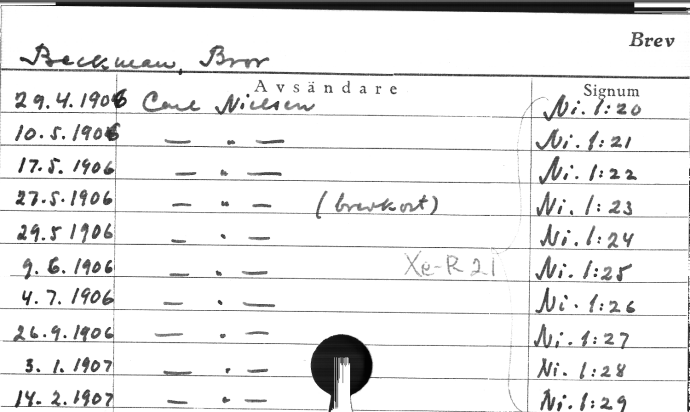 Brev
Beckman, Bror
Avsändare Signum
29.4.1906 Carl Nielsen Ni. 1:20
10.5.1906 — " — Ni. 1:21
17.5.1906 — " — Ni. 1:22
27.5.1906 — " — (brevkort) Ni. 1:23
29.5 1906 — " — Ni. 1:24
9.6.1906 — " — Xe-R 21 Ni. 1:25
4.7.1906 — " — Ni. 1:26
26.9.1906 — " — Ni. 1:27
3.1.1907 — " — Ni. 1:28
14.2.1907 — " — Ni. 1:29